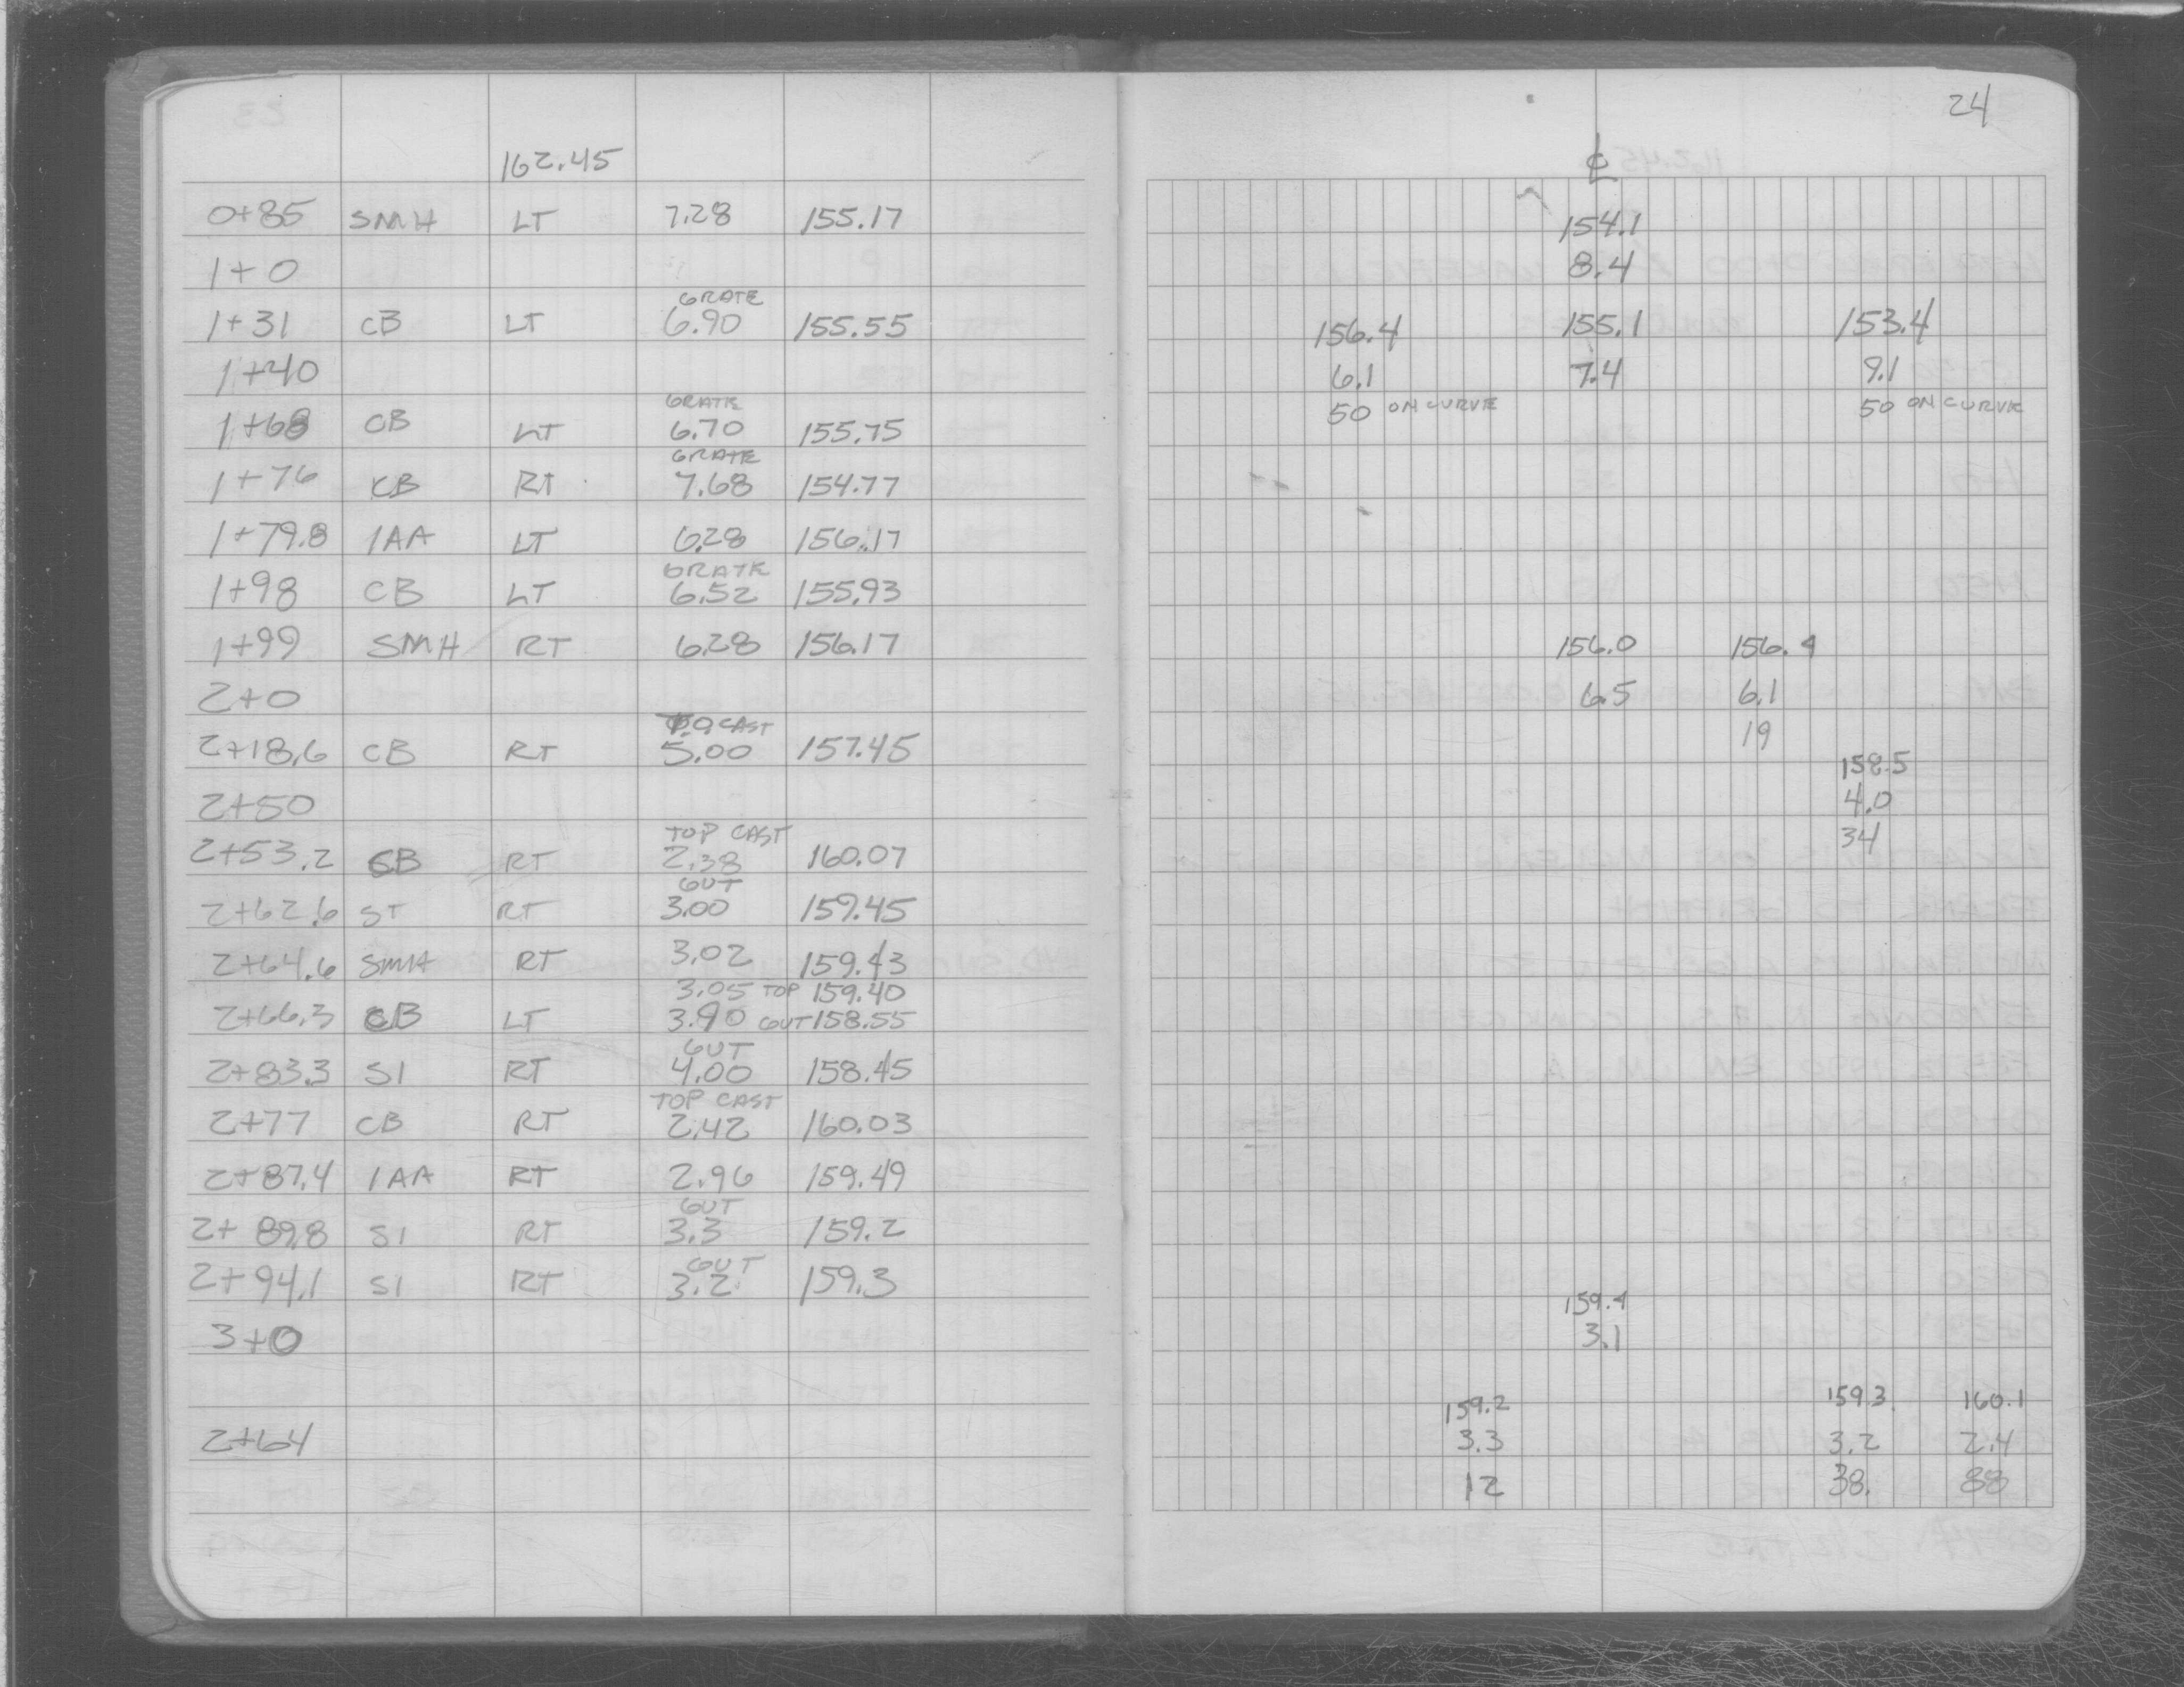 162.45
0+85 SMH LT 7.28 155.17
1+0
GRATE
1+31 CB LT 6.90 155.55
1+40
GRATE
1+68 CB LT 6.70 155.75
GRATE
1+76 CB RT 7.68 154.77
1+79.8 1AA LT 6.28 156.17
GRATE
1+98 CB LT 6.52 155.93
1+99 SMH RT 6.28 156.17
2+0
CAST
2+18.6 CB RT 5.00 157.45
2+50
TOP CAST
2+53.2 CB RT 2.38 160.07
GUT
2+62.6 ST RT 3.00 159.45
2+64.6 SMH RT 3.02 159.43
3.05 TOP 159.40
2+66.3 CB LT 3.90 GUT 158.55
GUT
2+83.3 S1 RT 4.00 158.45
TOP CAST
2+77 CB RT 2.42 160.03
2+87.4 1AA RT 2.96 159.49
GUT
2+89.8 S1 RT 3.3 159.2
GUT
2+94.1 S1 RT 3.2 159.3
3+0
2+64
24
℄
154.1
8.4
156.4 155.1 153.4
6.1 7.4 9.1
50 ON CURVE 50 ON CURVE
156.0 156.4
6.5 6.1
19
158.5
4.0
34
159.4
3.1
159.2 159.3 160.1
3.3 3.2 2.4
12 38. 88